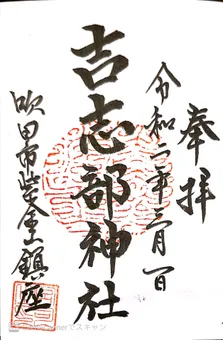 奉拝
令和二年三月一日
吉志部神社
吹田市紫金山鎮座
nerでスキャン